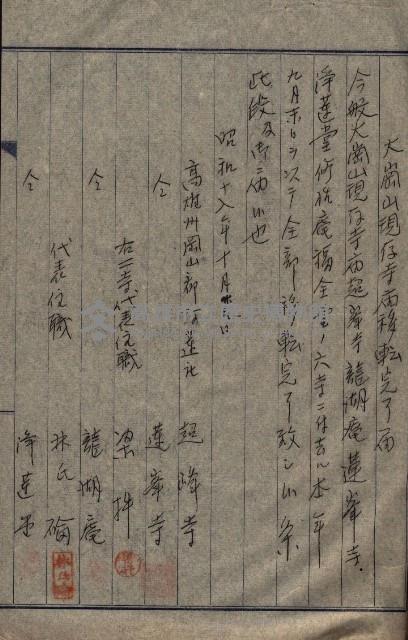 大崗山現存寺廟移転完了届
今般大崗山現存寺廟超峯寺龍湖庵蓮峯寺
淨蓮堂修 庵 福全 ノ六寺ニ付去ル本年
九月末日ヲ以テ全部移転完了致シ候条
此段及御届候也
昭和十八年十月 日
高雄州岡山郡阿蓮庄 超峰寺
仝 蓮峯寺
右二寺代表住職 梁拌
仝 龍湖庵
代表住職 林氏
仝 淨蓮堂